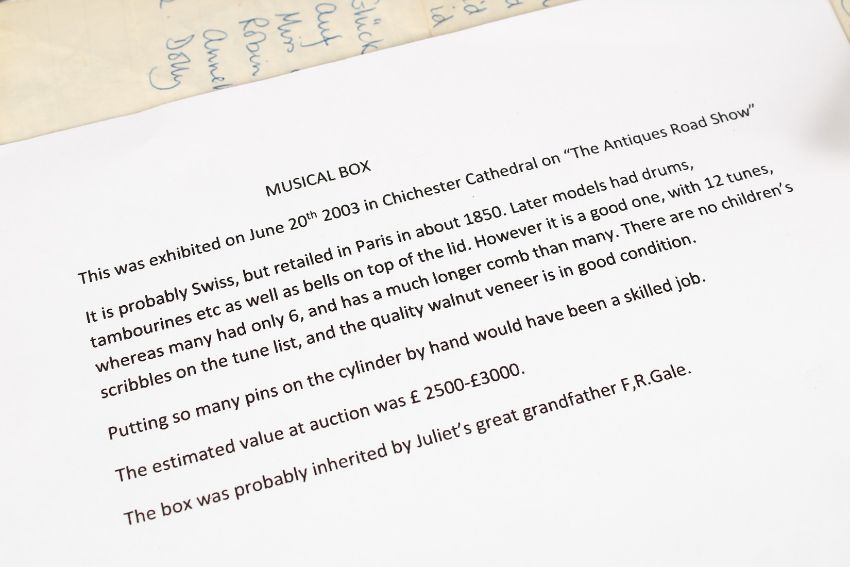 Glück
Auf
Miss
Robin
Dolly
MUSICAL BOX
This was exhibited on June 20th 2003 in Chichester Cathedral on “The Antiques Road Show”
It is probably Swiss, but retailed in Paris in about 1850. Later models had drums,
tambourines etc as well as bells on top of the lid. However it is a good one, with 12 tunes,
whereas many had only 6, and has a much longer comb than many. There are no children’s
scribbles on the tune list, and the quality walnut veneer is in good condition.
Putting so many pins on the cylinder by hand would have been a skilled job.
The estimated value at auction was £ 2500-£3000.
The box was probably inherited by Juliet’s great grandfather F,R.Gale.